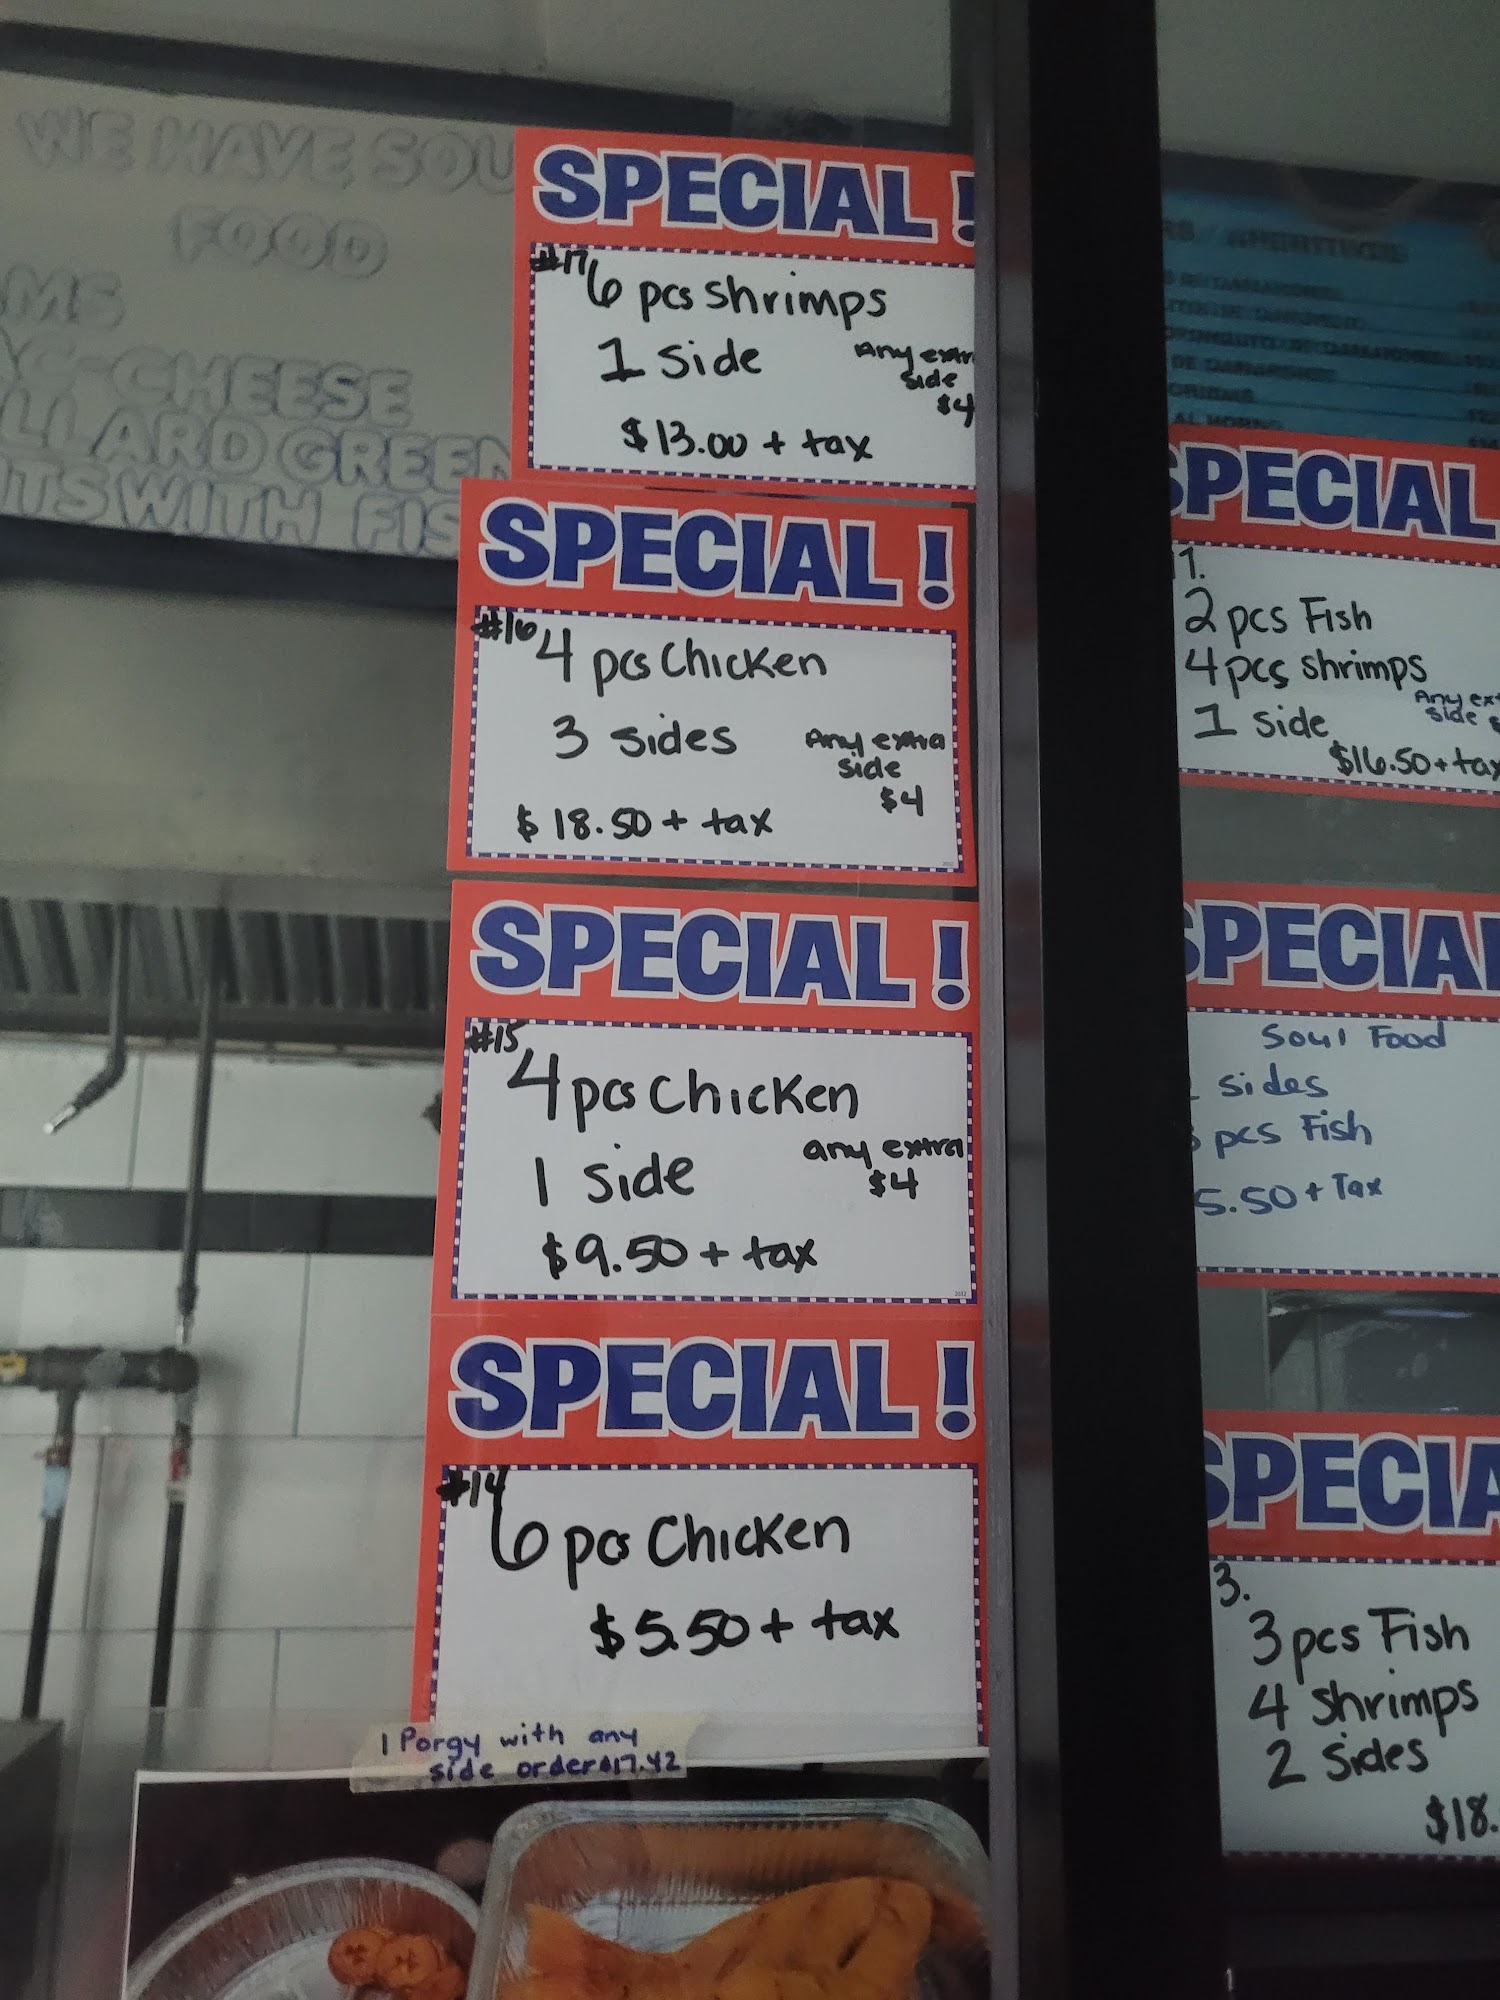 WE HAVE SOU
FOOD
MS
AC-CHEESE
LLARD GREEN
ITS WITH FIS
SPECIAL!
#17
6 pcs shrimps
1 side
Any extr
side
$4
$13.00 + tax
SPECIAL!
#16
4 pcs Chicken
3 sides
Any extra
side
$4
$18.50 + tax
SPECIAL!
#15
4 pcs Chicken
1 side
any extra
$4
$9.50 + tax
SPECIAL!
#14
6 pcs Chicken
$5.50 + tax
1 Porgy with any
side order $17.42
DE CAMARONES
AL HORNO
SPECIAL
1.
2 pcs Fish
4 pcs shrimps
1 side
Any ext
side
$16.50 + tax
SPECIAL
Soul Food
sides
pcs Fish
5.50 + Tax
SPECIA
3.
3 pcs Fish
4 shrimps
2 sides
$18.